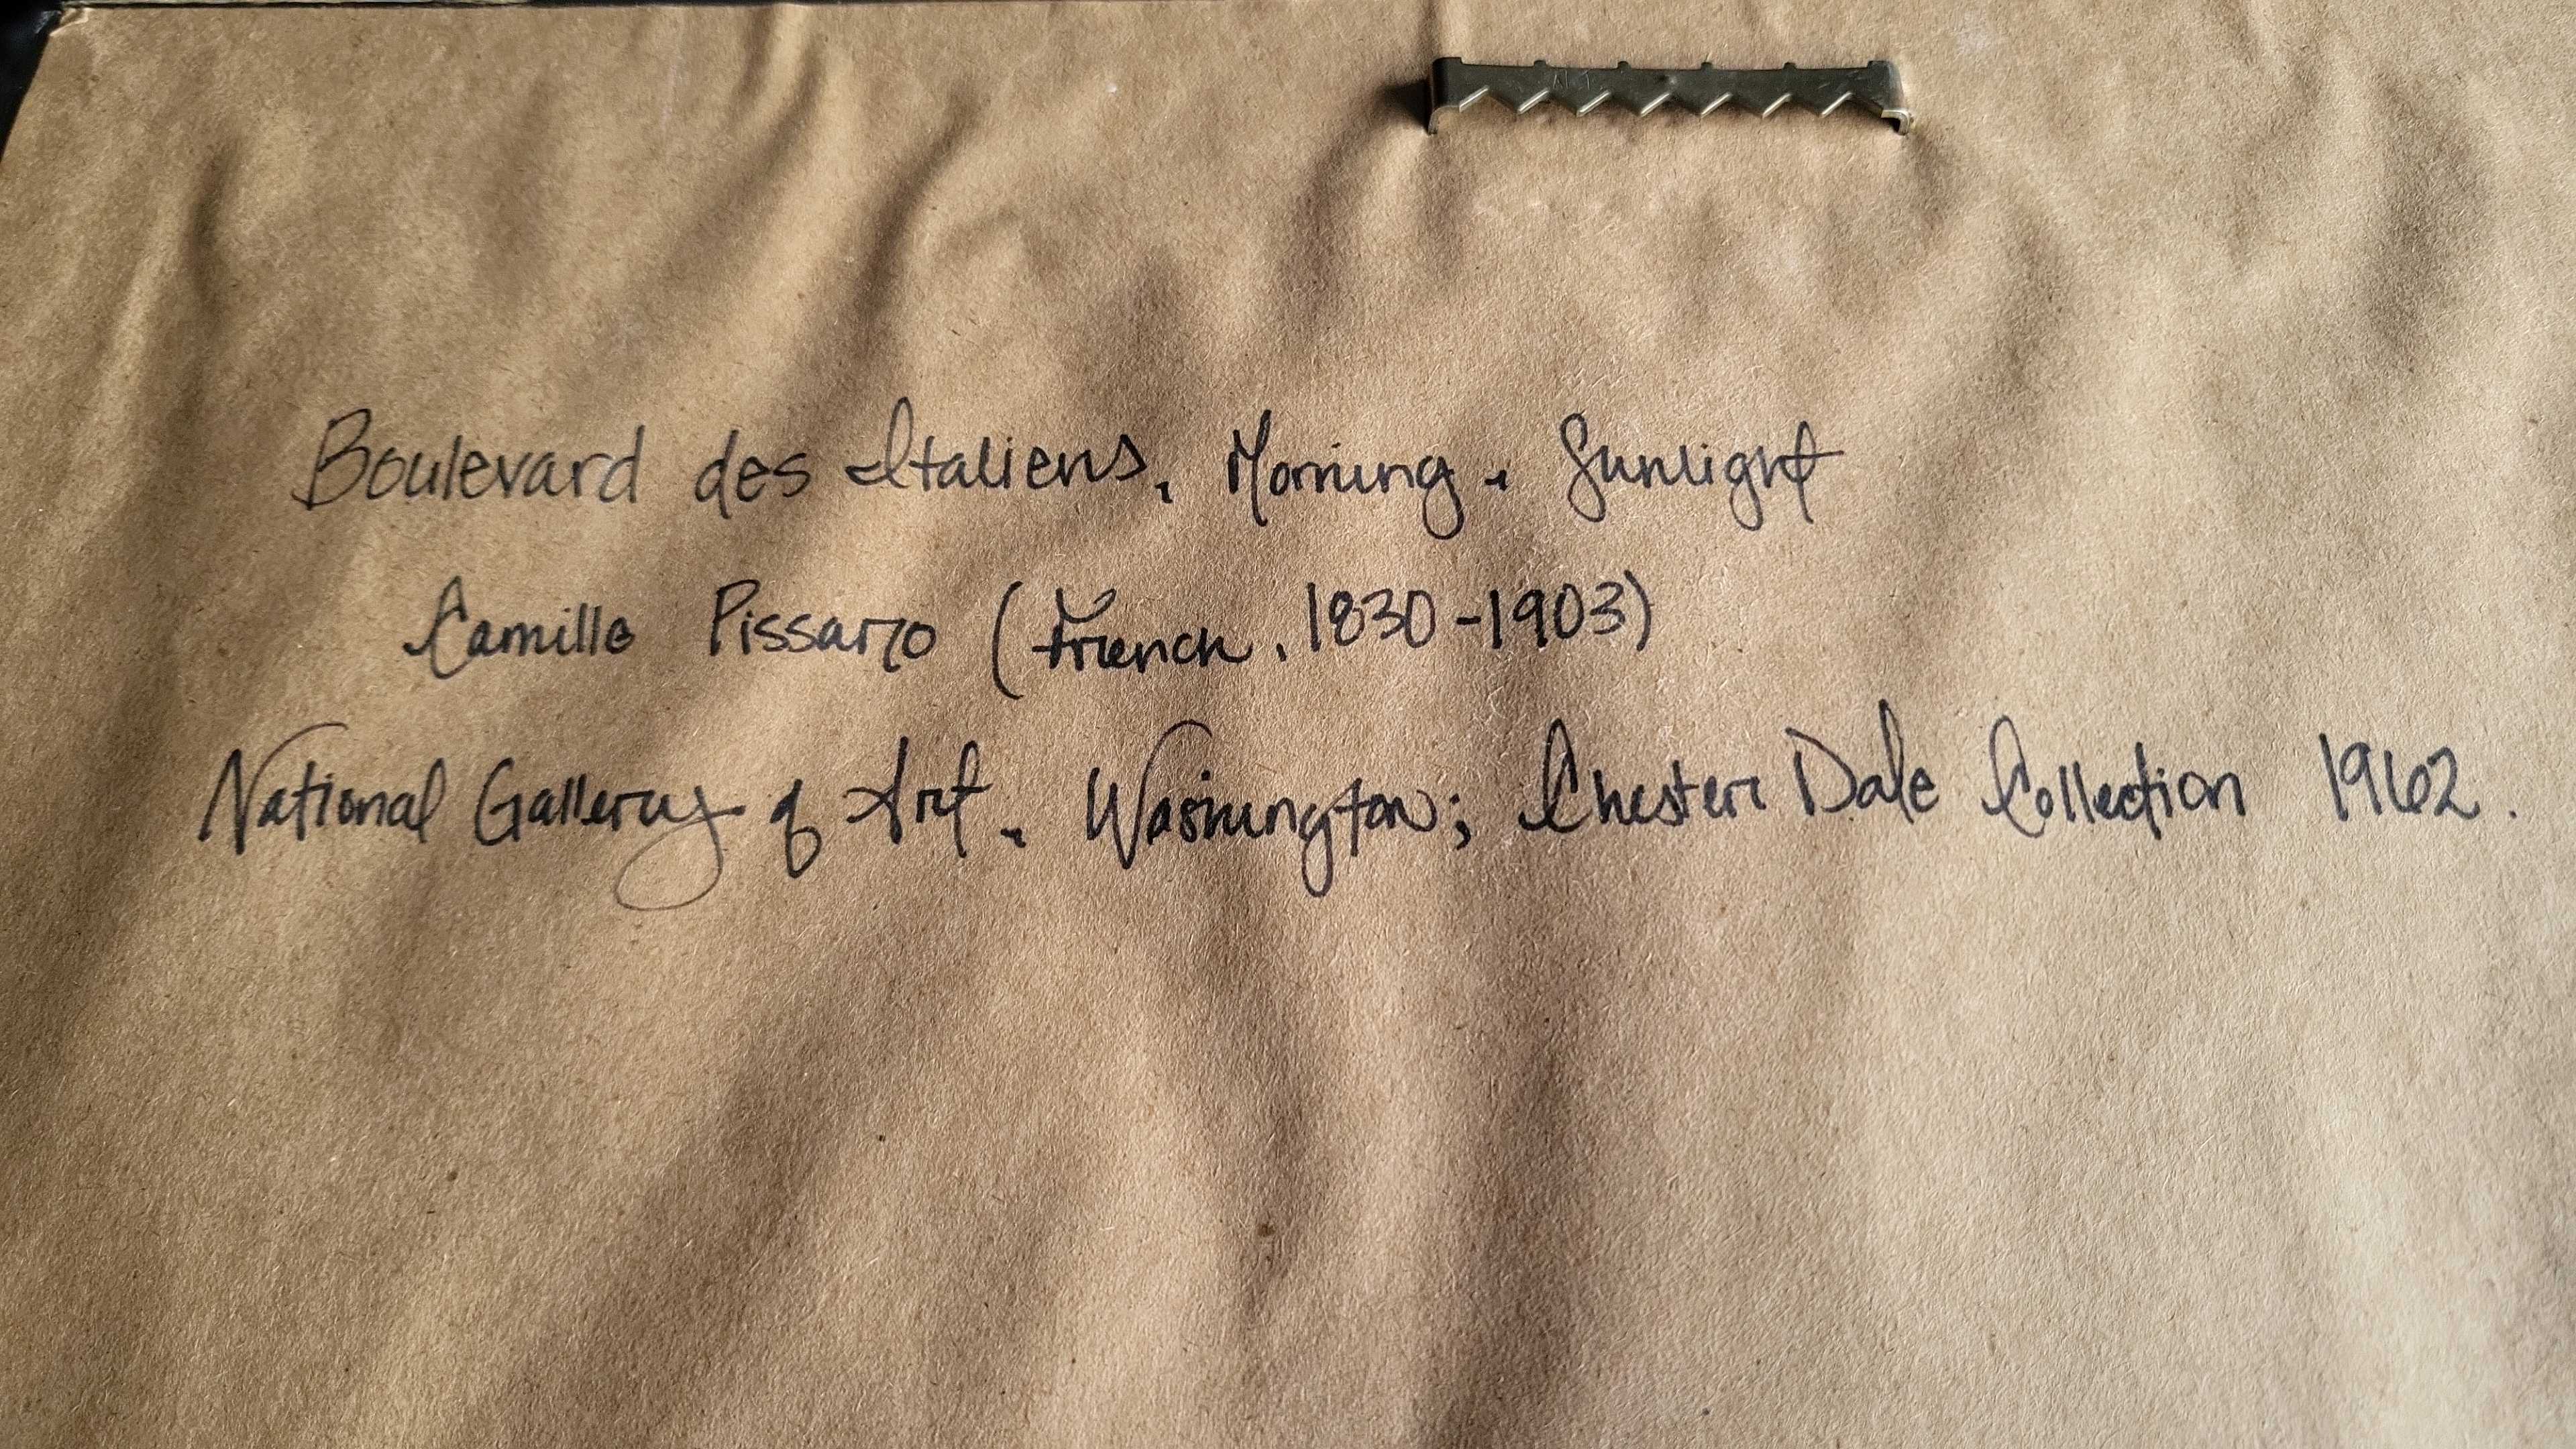 Boulevard des Italiens, Morning, Sunlight
Camille Pissarro (French, 1830-1903)
National Gallery of Art, Washington; Chester Dale Collection 1962.